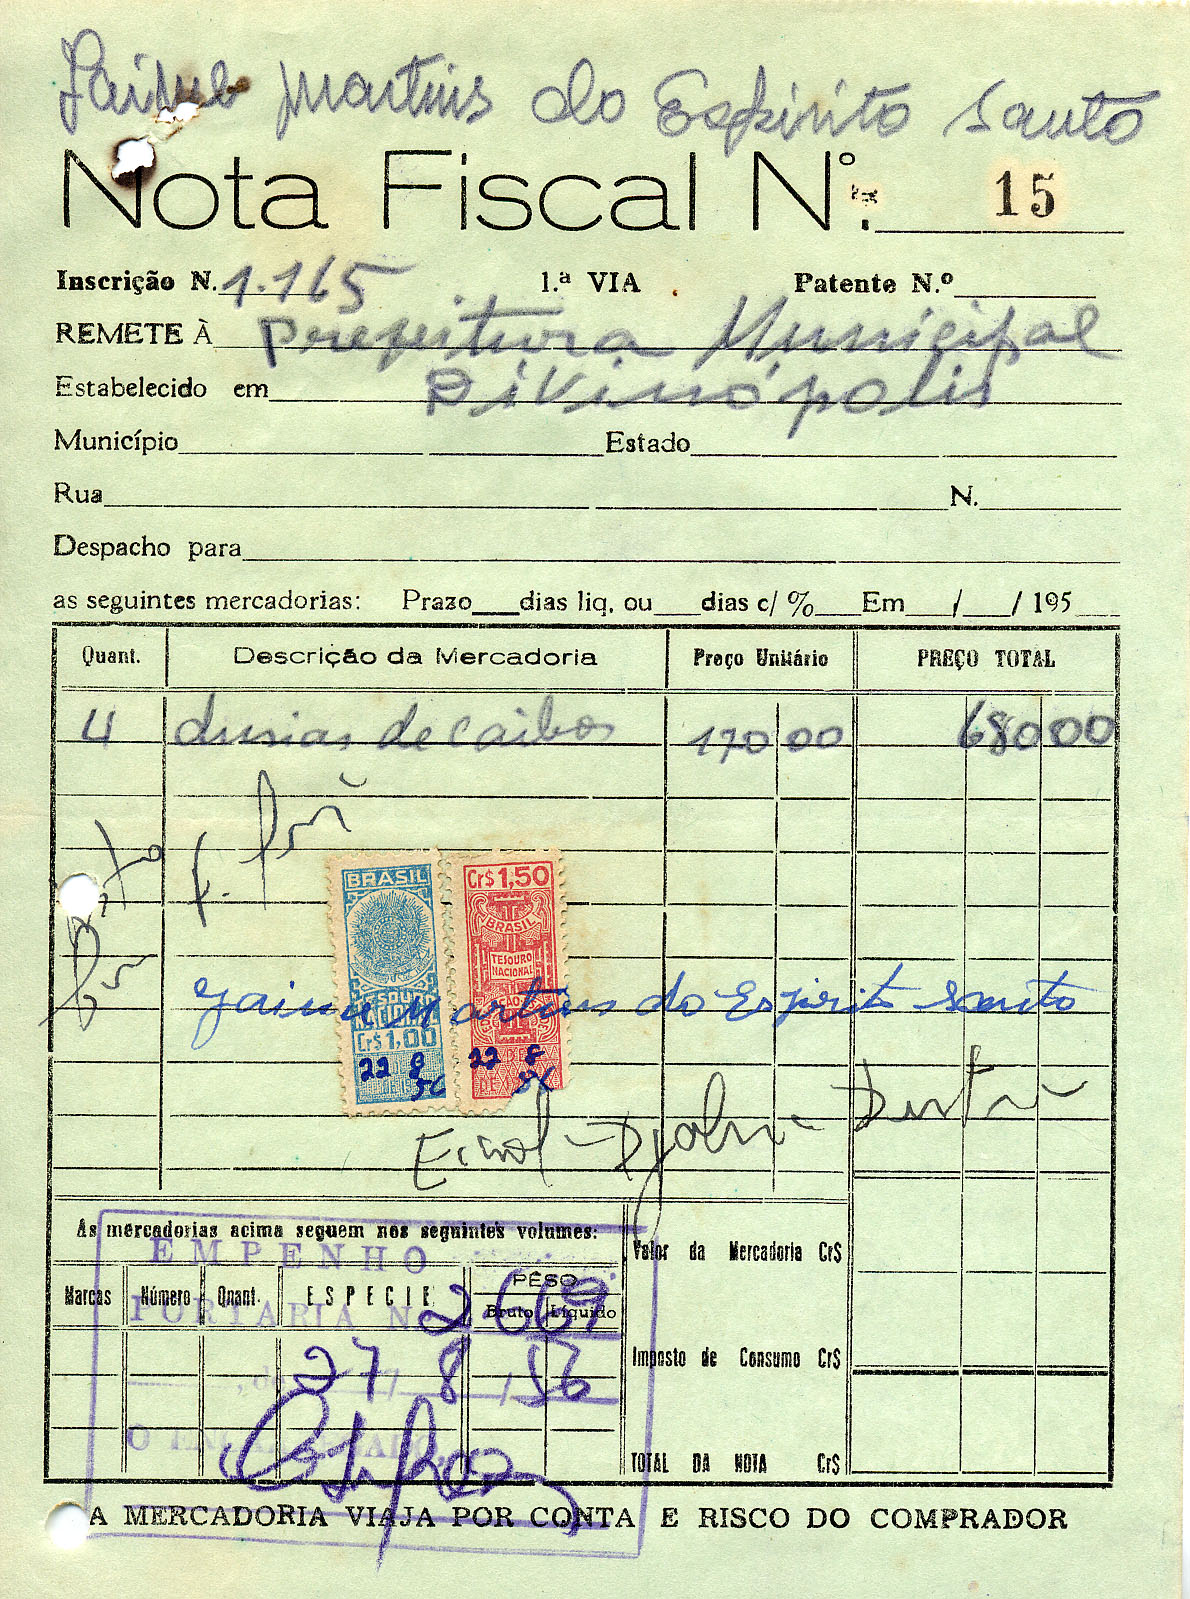 Jaime Martins do Espirito Santo
Nota Fiscal N.º 15
Inscrição N. 1.165 1.ª VIA Patente N.º
REMETE À Prefeitura Municipal
Estabelecido em Divinópolis
Município Estado
Rua N.
Despacho para
as seguintes mercadorias: Prazo dias liq. ou dias c/ % Em / / 195
Quant. Descrição da Mercadoria Preço Unitário PREÇO TOTAL
4 dusias de caibos 170 00 680 00
BRASIL Cr$ 1,50
BRASIL
TESOURO
NACIONAL
Jaime Martins do Espirito Santo
Cr$ 1,00
22 8 22 8
56 56
As mercadorias acima seguem nos seguintes volumes:
EMPENHO
Valor da Mercadoria Cr$
Marcas Número Quant. ESPECIE PÊSO
Bruto Líquido
PORTARIA N. 2669
Imposto de Consumo Cr$
27 / 8 / 56
TOTAL DA NOTA Cr$
A MERCADORIA VIAJA POR CONTA E RISCO DO COMPRADOR